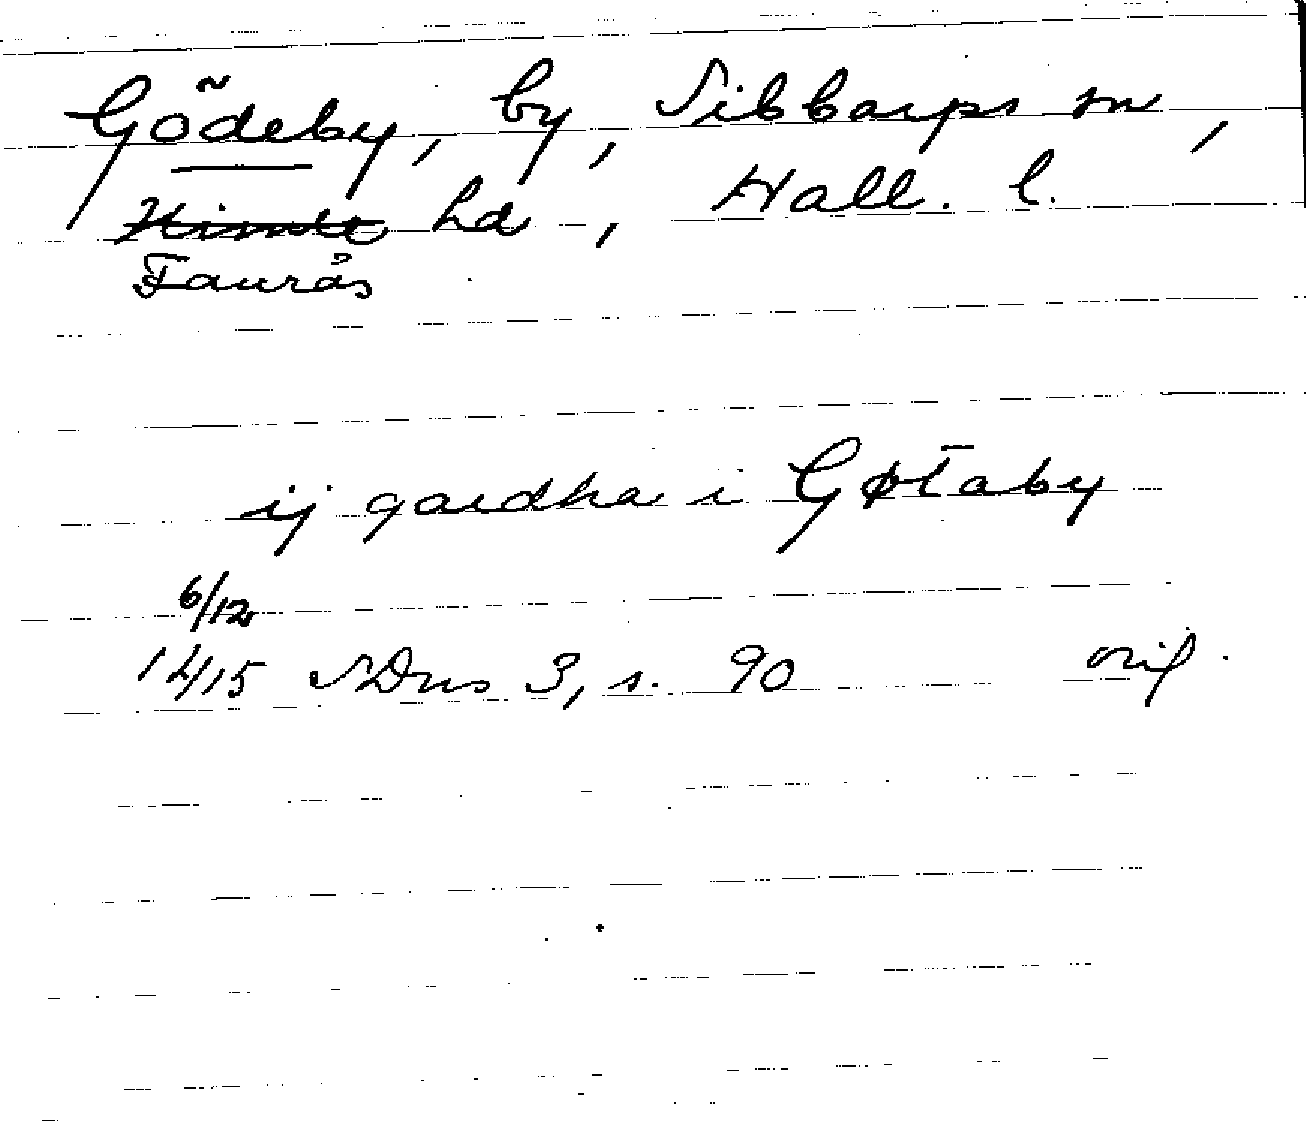 Gödeby, by, Sibbarps sn,
Himle hd, Hall. l.
Faurås
ij gardha i Gøtaby
6/12
1415 SDns 3, s. 90 orig.